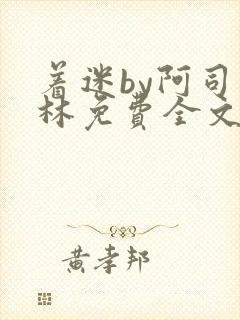 着迷by阿司
林免费全文
黄孝邦